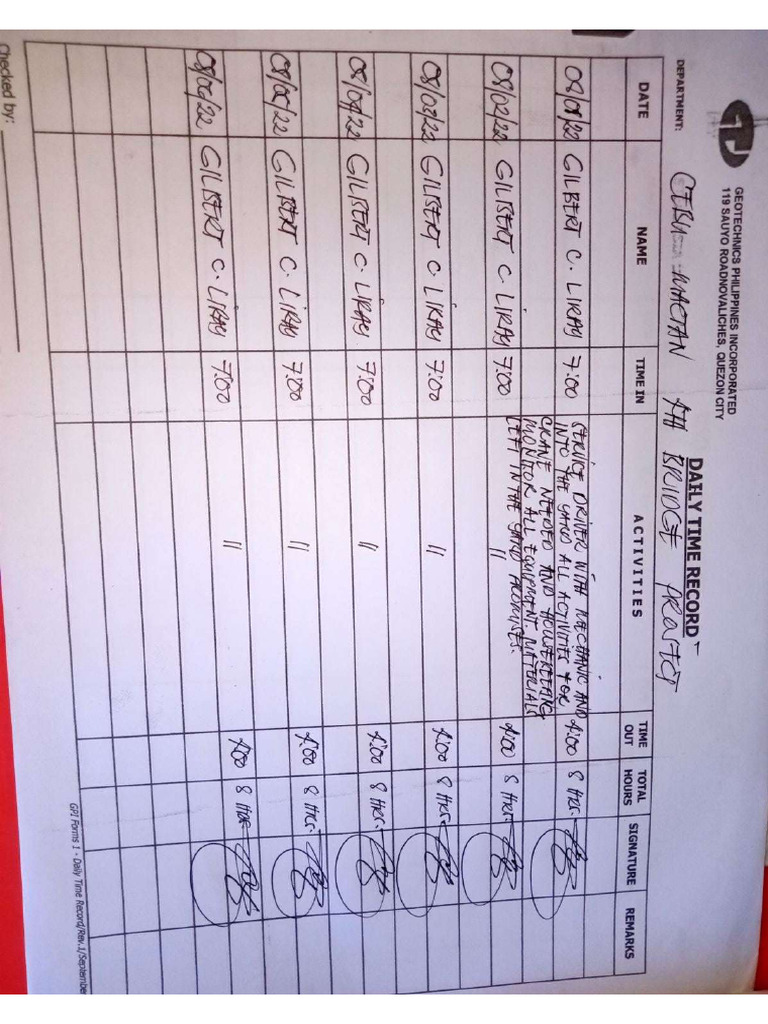 GEOTECHNICS PHILIPPINES INCORPORATED
119 SAUYO ROADNOVALICHES, QUEZON CITY
DAILY TIME RECORD
DEPARTMENT: CEBU-MACTAN 4TH BRIDGE PROJECT
DATE NAME TIME IN ACTIVITIES TIME OUT TOTAL HOURS SIGNATURE REMARKS
08/01/22 GILBERT C. LIRAY 7:00 SERVICE DRIVER WITH MECHANIC AND 4:00 8 HRS.
INTO THE YARD ALL ACTIVITIES FOR
CRANE NEEDED AND HOUSEKEEPING
MONITOR ALL EQUIPMENT. MATERIALS
LEFT IN THE YARD PROMISES.
08/02/22 GILBERT C. LIRAY 7:00 11 4:00 8 HRS.
08/03/22 GILBERT C. LIRAY 7:00 11 4:00 8 HRS.
08/04/22 GILBERT C. LIRAY 7:00 11 4:00 8 HRS.
08/05/22 GILBERT C. LIRAY 7:00 11 4:00 8 HRS.
08/06/22 GILBERT C. LIRAY 7:00 11 4:00 8 HRS.
GPI Forms 1 - Daily Time Record/Rev.1/September
Checked by: